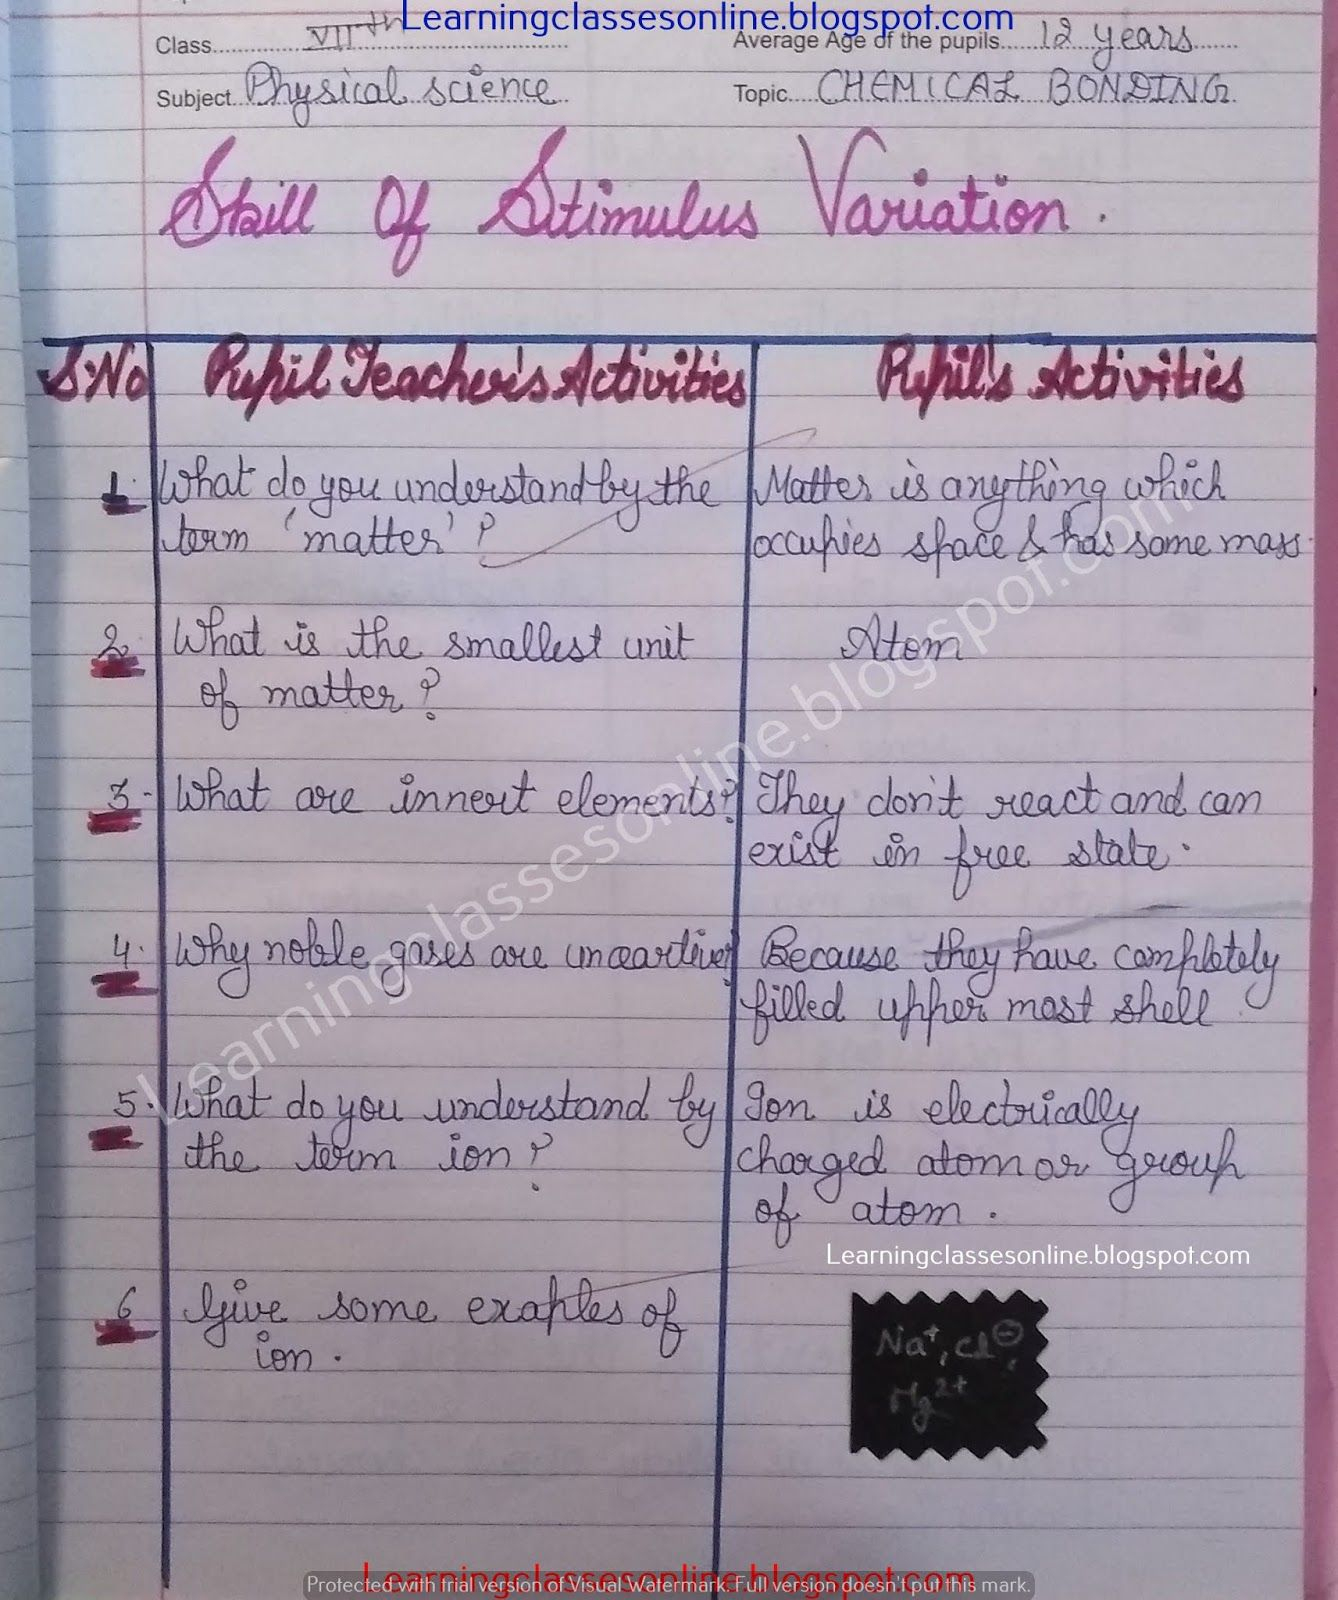 Learningclassesonline.blogspot.com
Class VIIth Average Age of the pupils 12 years
Subject Physical science Topic CHEMICAL BONDING
Skill Of Stimulus Variation.
S.No Pupil Teacher's Activities Pupil's Activities
1. What do you understand by the
term 'matter'?
Matter is anything which
occupies space & has some mass.
2. What is the smallest unit
of matter?
Atom
3. What are innert elements?
They don't react and can
exist in free state.
4. Why noble gases are
Because they have completely
filled upper most shell
5. What do you understand by
the term ion?
Ion is electrically
charged atom or group
of atom.
Learningclassesonline.blogspot.com
6. Give some exaples of
ion.
Na⁺, Cl⊖,
Mg²⁺
Learningclassesonline.blogspot.com
Learningclassesonline.blogspot.com
Protected with trial version of Visual Watermark. Full version doesn't put this mark.